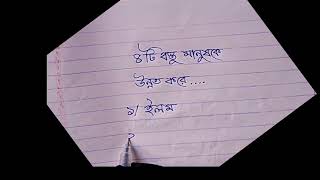 ৪টি বস্তু মানুষকে
উন্নত করে....
১/ ইলম
২